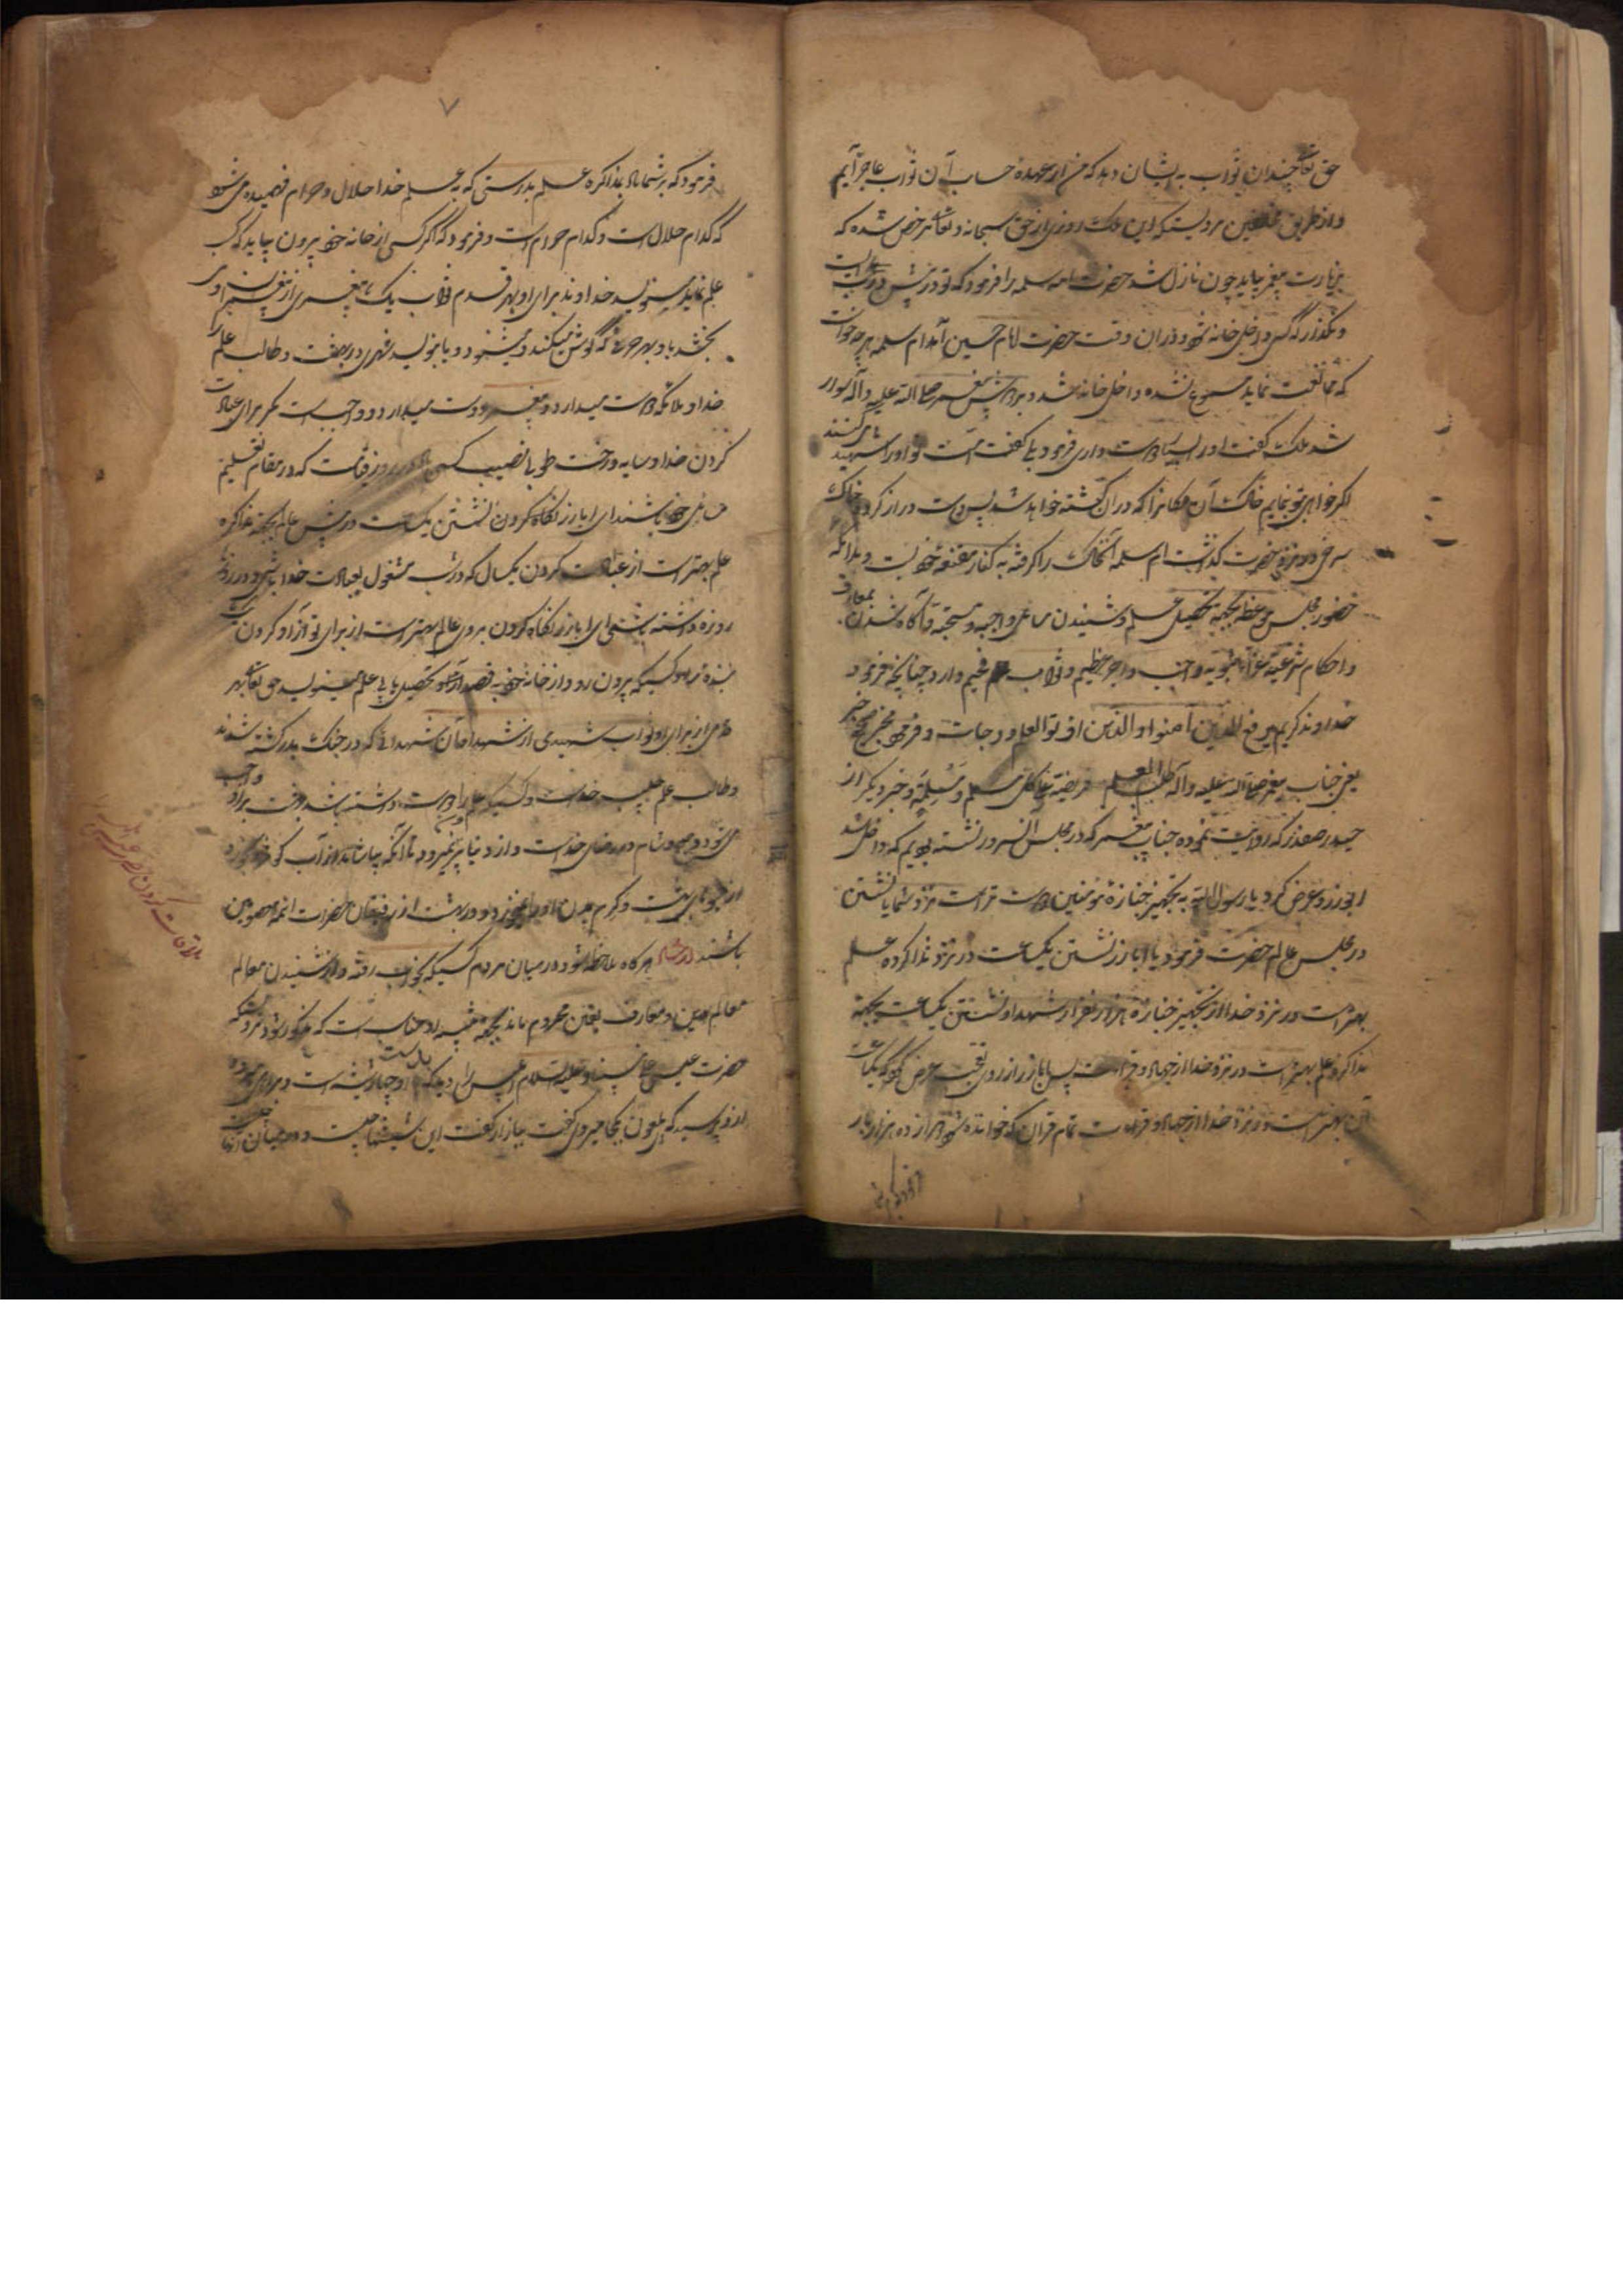 حق تعا چندان ثواب به ایشان دهد که من از عهده حساب آن ثواب عاجز آیم
و از طریق مخالفین مرویست که این ملک روزی از حق سبحانه و تعا مرخص شده که
بزیارت پیغمبر بیاید چون نازل شد حضرت امه سلمه را فرمود که تو در پیش در
و نگذار که کسی داخل خانه شود در ان وقت حضرت امام حسین آمد ام سلمه هر چه خواست
که ممانعت نماید ممنوع نشده داخل خانه شد و بر پیغمبر صلی الله علیه و آله سوار
شد ملک گفت او را بسیار دوست داری فرمود بلی گفت امت تو او را شهید میکنند
اگر خواهی بتو بنمایم خاک آن مکانرا که در ان کشته خواهد شد پس دست دراز کرد و خاک
سرخی در نزد حضرت گذاشت ام سلمه آنخاک را گرفته به کنار مقنعه خود بست و بدانکه
حضور مجلس موعظه بجهة تحصیل علم و شنیدن مسائل واجبه و مستحبه و آگاه شدن بمعارف
و احکام شرعیه واجب و اجر عظیم و ثواب فخیم دارد چنانچه فرمود
خداوند کریم یرفع الذین آمنوا و الذین اوتوا العلم درجات و فرمود مخبر صحیح خبر
یعنی جناب پیغمبر صلی الله علیه و آله طلب العلم فریضة علی کل مسلم و مسلمة و خبر دیگر از
حیدر صفدر که روایت نموده جناب پیغمبر که در مجلس آنسرور نشسته بودیم که داخل شد
ابوزر و عرض کرد یا رسول الله به تجهیز جنازه مؤمنین دوست تر است نزد شما یا نشستن
در مجلس عالم حضرت فرمود یا ابازر نشستن یکساعت در نزد مذاکره علم
بهتر است در نزد خدا از تجهیز جنازه هزار نفر از شهدا و نشستن یکساعت بجهة
مذاکره علم بهتر است در نزد خدا از جهاد و قرائت پس ابازر از روی تعجب عرض کرد که یکساعت
آن بهتر است در نزد خدا از جهاد و قرائت تمام قران که خوانده شود از ده هزار بار
۷
فرمود که بر شما باد بمذاکره علم بدرستی که به علم خدا حلال و حرام فهمیده میشود
که کدام حلال است و کدام حرام است و فرمود که اگر کسی از خانه خود بیرون بیاید که کسب
علم نماید مینویسد خداوند برای او بهر قدم ثواب یک پیغمبری از پیغمبران و
بخشد باو بهر حرفی که گوش میکند و میشنود و یا بنویسد شهری در بهشت و طالب علم را
خدا و ملائکه دوست میدارد و پیغمبر دوست میدارد و واجب است مگر برای عبادت
کردن خدا و سایه درخت طوبا نصیب کسی باد در روز قیامت که در مقام تعلیم
مسائل خود باشند ای ابازر نگاه کردن نشستن یکساعت در پیش عالم بجهة مذاکره
علم بهتر است از عبادت کردن یکسال که در شب مشغول بعبادت خدا باشی و در روز
روزه داشته باشی ای ابازر نگاه کردن بروی عالم بهتر است از برای تو از آزاد کردن
بنده هر کسیکه بیرون رود از خانه خود به قصد آنکه تحصیل بابی علم مینویسد حق تعا بهر
قدمی از برای او ثواب شهیدی از شهدا آن شهدائی که در جنگ بدر کشته شدند
و طالب علم حبیب خداست و کسیکه علم را دوست داشته باشد بهشت برای او واجب
میشود و صبح و شام در رضای خداست و از دنیا بیرون نمیرود تا آنکه بیاشامد از آب کوثر
از میوهای بهشت و کرم بدن او را نخورد و در بهشت از رفیقان حضرات ائمه معصومین
باشند ارشاد هر گاه ملاحظه شود در میان مردم کسیکه بخواب رفته و از شنیدن معالم
معالم دین و معارف یقین محروم ماند
حضرت عیسی علی نبینا و علیه السلام ابلیس را دید که بار او چهار شیشه است
از او پرسید که ای ملعون بکجا میروی گفت ببازار گفت این شیشها چیست و در میان آنها چیست
ملاقات کردن حضرت عیسی